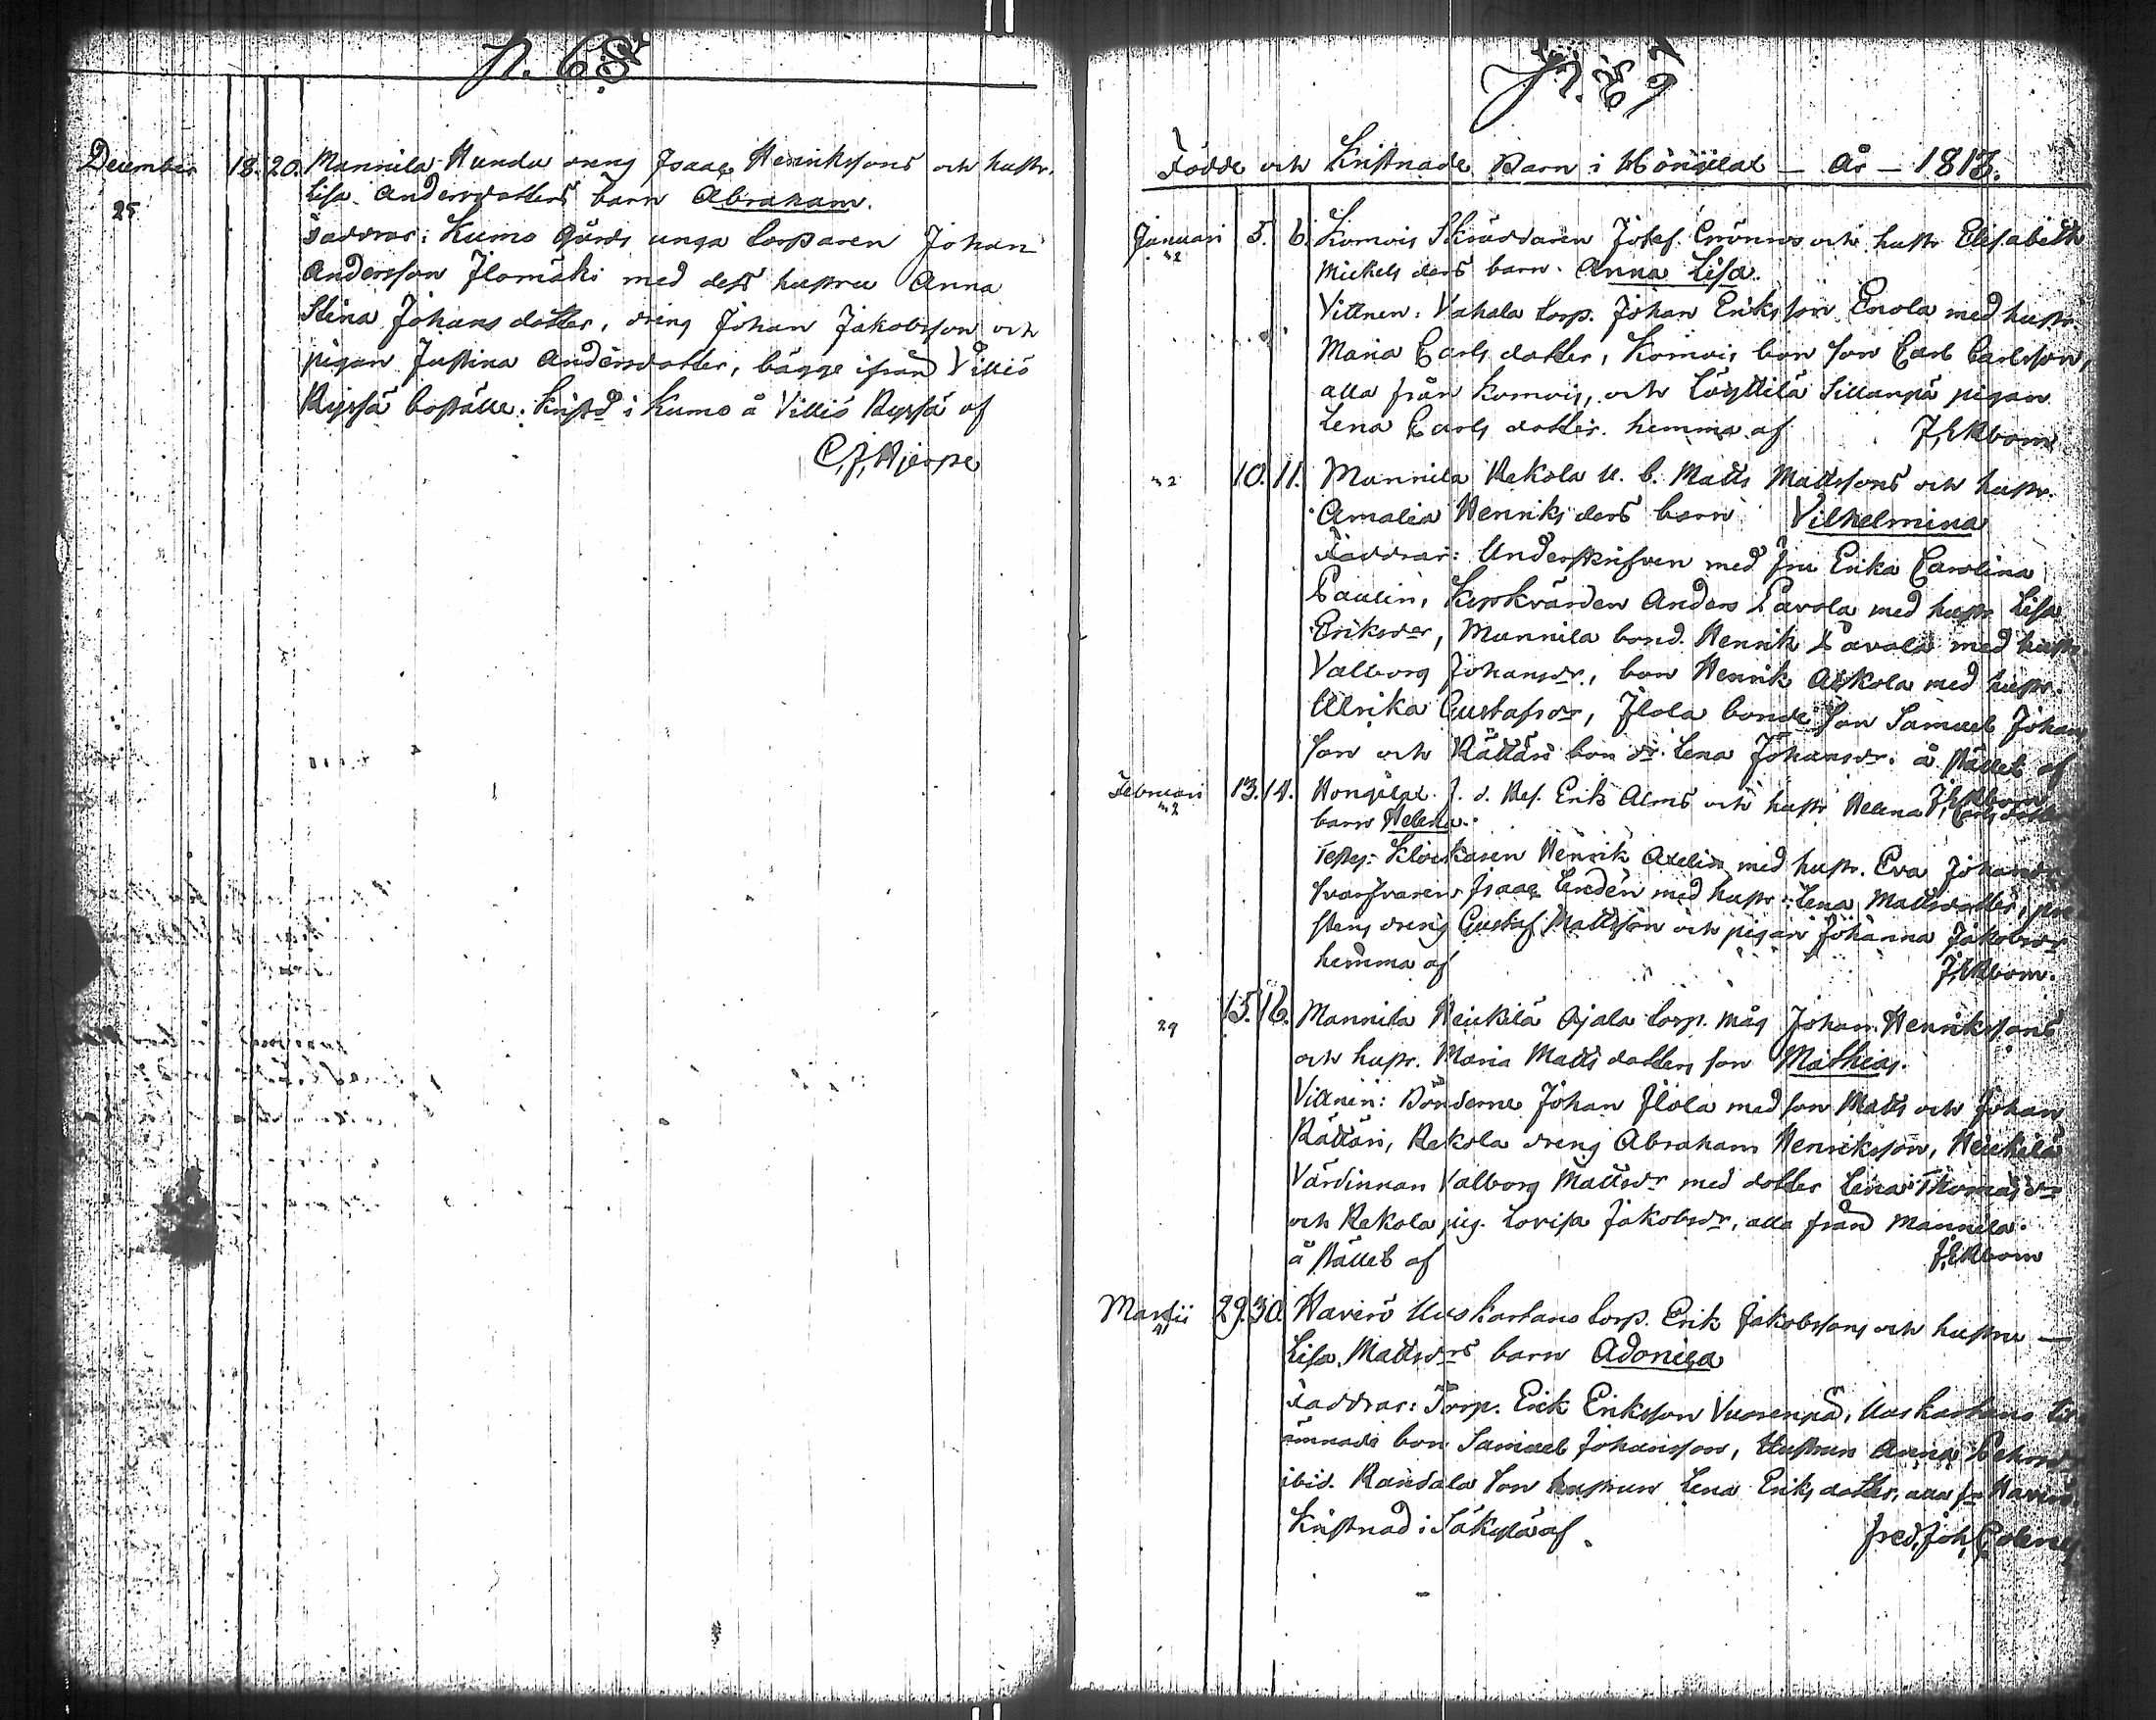 p. 68
December 18. 20. Mannila Hundu dreng Isaac Henrikssons och hustr.
25 Lisa Andersdotters barn Abraham.
Faddrar: Kumo Gårds unga torparen Johan
Andersson Ilomäki med dess hustru Anna
Stina Johansdotter, dreng Johan Jakobsson och
pigan Justina Andersdotter, bägge ifrån Villiö
Ryssä boställe. Kristd i Kumo å Villiö Ryssä af
C. J. Hjerpe
p. 69
Födde och Kristnade Barn i Honjilax – År – 1813.
Januari 5. 6. Komois Skräddaren Josef Enönros och hustr Elisabeth
Mickels ders barn. Anna Lisa.
Vittnen: Vahala torp. Johan Eriksson Enola med hustr.
Maria Carlsdotter, Komois bon son Carl Carlsson,
alla från Komois, och Löyttilä Sillanpä pigan
Lena Carlsdotter. hemma af J. Ekbom
10. 11. Mannila Rekola u. b. Matts Mattssons och hustr.
Amalia Henriks ders barn Vilhelmina
Faddrar: Underskrifven med fru Erika Carolina
Paulin, Kyrkvärden Anders Pavola med hustr Lisa
Eriksdr, Mannila bond. Henrik Pavola med hustr
Valborg Johansdr., bon Henrik med hustr.
Ulrika Gustafsdr, Ilola bonde son Samuel Johans
son och Rättäri bon dr. Lena Johansdr. å stället af
J. Ekbom
Februari 13. 14. Honjilax f. d. Ref. Erik Alms och hustr Helena Carlsdotters
barn Helena.
Testes: Klockaren Henrik Axelin med hustr. Eva Johansdr
svarfvaren Isaac Lindén med hustr: Lena Mattsdotter, pre
stens dreng Gustaf Mattsson och pigan Johanna Jakobsdr
hemma af J. Ekbom.
15. 16. Mannila Heickilä Ojala torp. måg Johan Henrikssons
29 och hustr. Maria Matts dotters son Mathias.
Vittnen: Bönderne Johan Ilola med son Matts och Johan
Rättäri, Rekola dreng Abraham Henriksson, Heickilä
Värdinnan Valborg Mattsdr med dotter Lena Thomasdr
och Rekola pig. Lovisa Jakobsdr, alla från Mannila.
å stället af J. Ekbom
Martii 29. 30. Haverö Uuskartano torp. Erik Jakobssons och hustru —
Lisa Mattsdrs barn Adoniga
Faddrar: Torp. Erik Eriksson Vuorenpä, Uuskartano til
ämnade bon Samuel Johansson, Hustrun Anna
ibid. Randala son hustrun Lena Eriksdotter, alla fr Haverö.
Kristnad i Säkylä af Fred. Joh.